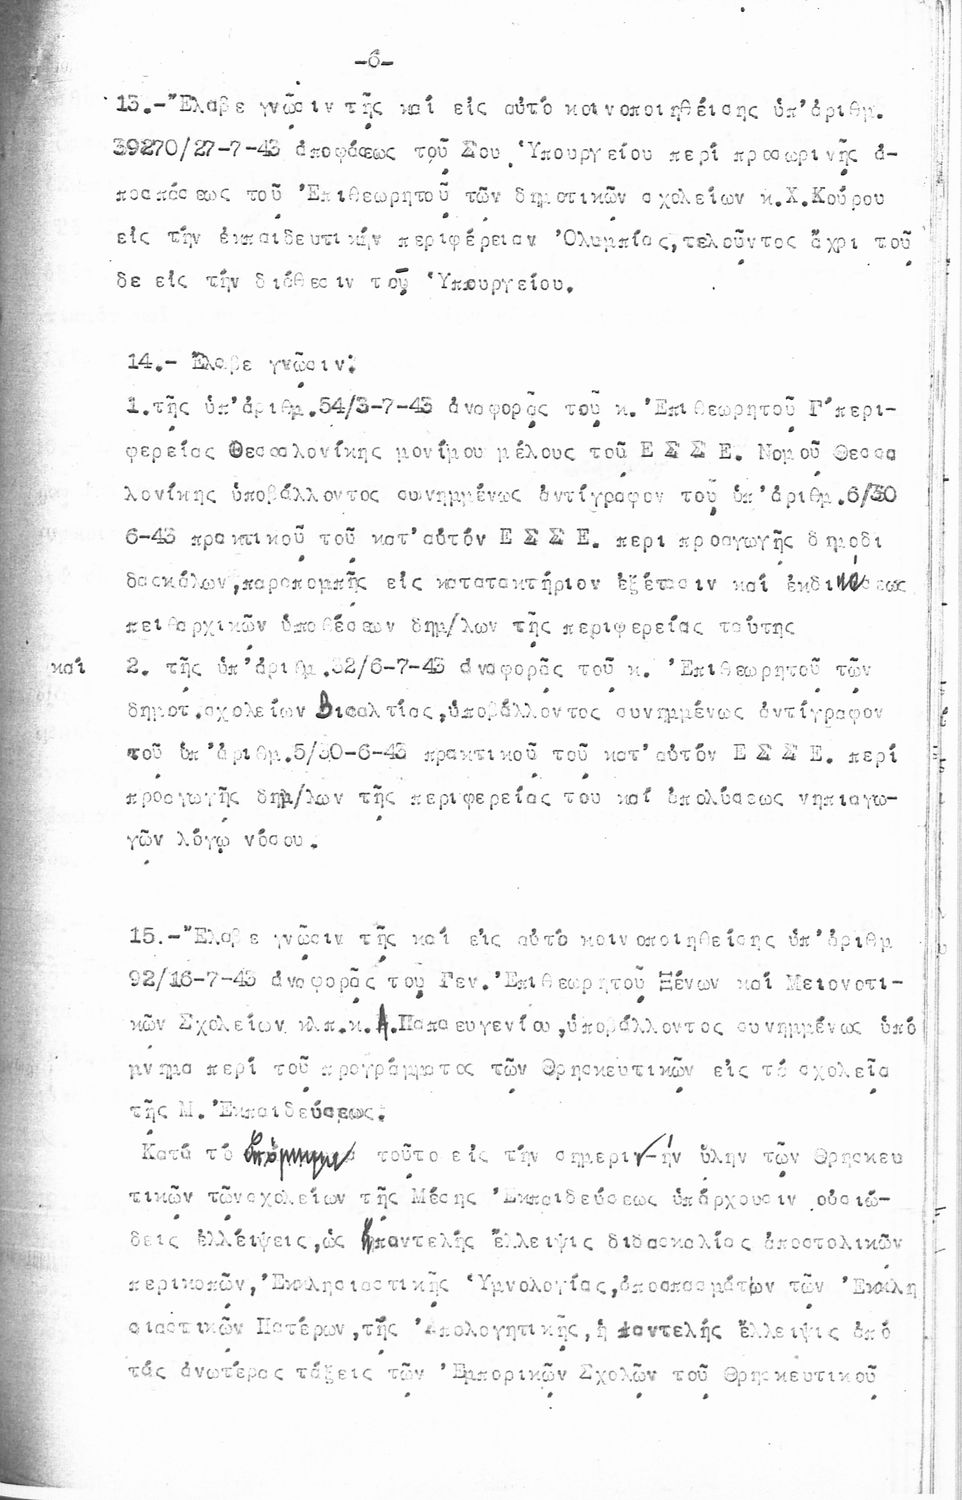 -6-
13.-Ἔλαβε γνῶσιν τῆς καί εἰς αὐτό κοινοποιηθείσης ὑπ'ἀριθμ.
39270/27-7-43 ἀποφάσεως τοῦ Σου Ὑπουργείου περί προσωρινῆς ἀ-
ποσπάσεως τοῦ Ἐπιθεωρητοῦ τῶν δημοτικῶν σχολείων κ.Χ.Κούρου
εἰς τήν ἐκπαιδευτικήν περιφέρειαν Ὀλυμπίας,τελοῦντος ἄχρι τοῦ
δε εἰς τήν διάθεσιν τοῦ Ὑπουργείου.
14.- Ἔλαβε γνῶσιν:
1.τῆς ὑπ'ἀριθμ.54/3-7-43 ἀναφορᾶς τοῦ κ.Ἐπιθεωρητοῦ Γ'περι-
φερείας Θεσσαλονίκης μονίμου μέλους τοῦ Ε Σ Σ Ε. Νομοῦ Θεσσα
λονίκης ὑποβάλλοντος συνημμένως ἀντίγραφον τοῦ ὑπ'ἀριθμ.6/30
6-43 πρακτικοῦ τοῦ κατ'αὐτόν Ε Σ Σ Ε. περι προαγωγῆς δημοδι
δασκάλων,παραπομπῆς εἰς κατατακτήριον ἐξέτασιν καί ἐκδικάσεως
πειθαρχικῶν ὑποθέσεων δημ/λων τῆς περιφερείας ταύτης
καί 2. τῆς ὑπ'ἀριθμ.32/6-7-43 ἀναφορᾶς τοῦ κ. Ἐπιθεωρητοῦ τῶν
δημοτ.σχολείων Βισαλτίας,ὑποβάλλοντος συνημμένως ἀντίγραφον
τοῦ ὑπ'ἀριθμ.5/30-6-43 πρακτικοῦ τοῦ κατ'αὐτόν Ε Σ Σ Ε. περί
προαγωγῆς δημ/λων τῆς περιφερείας του καί ἀπολύσεως νηπιαγω-
γῶν λόγῳ νόσου.
15.-Ἔλαβε γνῶσιν τῆς καί εἰς αὐτό κοινοποιηθείσης ὑπ'ἀριθμ
92/16-7-43 ἀναφορᾶς τοῦ Γεν.Ἐπιθεωρητοῦ Ξένων καί Μειονοτι-
κῶν Σχολείων κλπ.κ.Α.Παπαευγενίου,ὑποβάλλοντος συνημμένως ὑπό
μνημα περί τοῦ προγράμματος τῶν Θρησκευτικῶν εἰς τά σχολεῖα
τῆς Μ.Ἐκπαιδεύσεως:
Κατά τό ὑπόμνημα τοῦτο εἰς τήν σημερινήν ὕλην τῶν Θρησκευ
τικῶν τῶν σχολείων τῆς Μέσης Ἐκπαιδεύσεως ὑπάρχουσιν οὐσιώ-
δεις ἐλλείψεις,ὡς ἡ παντελής ἔλλειψις διδασκαλίας ἀποστολικῶν
περικοπῶν,Ἐκκλησιαστικῆς Ὑμνολογίας,ἀποσπασμάτων τῶν Ἐκκλη
σιαστικῶν Πατέρων,τῆς Ἀπολογητικῆς,ἡ παντελής ἔλλειψις ἀπό
τάς ἀνωτέρας τάξεις τῶν Ἐμπορικῶν Σχολῶν τοῦ Θρησκευτικοῦ